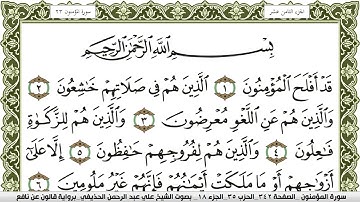 الجزء الثامن عشر
سورة المؤمنون ٢٣
بِسْمِ اللَّهِ الرَّحْمَٰنِ الرَّحِيمِ
قَدْ أَفْلَحَ الْمُؤْمِنُونَ ١ الَّذِينَ هُمْ فِي صَلَاتِهِمْ خَٰشِعُونَ ٢
وَالَّذِينَ هُمْ عَنِ اللَّغْوِ مُعْرِضُونَ ٣ وَالَّذِينَ هُمْ لِلزَّكَوٰةِ
فَٰعِلُونَ ٤ وَالَّذِينَ هُمْ لِفُرُوجِهِمْ حَٰفِظُونَ ٥ إِلَّا عَلَىٰ
أَزْوَٰجِهِمْ أَوْ مَا مَلَكَتْ أَيْمَٰنُهُمْ فَإِنَّهُمْ غَيْرُ مَلُومِينَ ٦
سورة المؤمنون ـ الصفحة ٣٤٢ الحزب ٣٥ ـ الجزء ١٨ ـ بصوت الشيخ علي عبد الرحمن الحذيفي ـ برواية قالون عن نافع